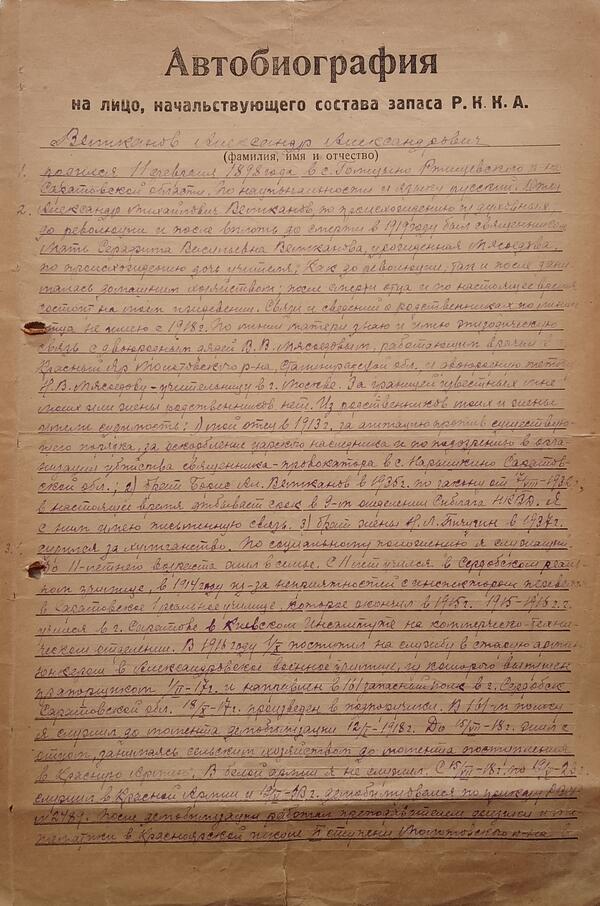 Автобиография
на лицо, начальствующего состава запаса Р. К. К. А.
Ветжанов Александр Александрович
(фамилия, имя и отчество)
1. родился 11 февраля 1898 года в с. Голицыно Ртищевского
Саратовской области. По национальности и языку русский. Отец
2. Александр Михайлович Ветжанов по происхождению из духовных
до революции и после вплоть до смерти в 1919 году был священником
Мать Серафима Васильевна Ветжанова, урожденная Мясоедова,
по происхождению дочь учителя; Как до революции, так и после зани
малась домашним хозяйством; после смерти отца и по настоящее время
состоит на моем иждивении. Связи и сведений о родственниках по линии
отца не имею с 1918 г. По линии матери знаю и имею эпизодическую
связь с двоюродным дядей В. В. Мясоедовым, работающим врачем в
Красный Яр Молотовского р-на, Сталинградской обл. и двоюродную тетку
Н. В. Мясоедову - учительницу в г. Москве. За границей известных мне
моих или жены родственников нет. Из родственников моих и жены
имели судимость: 1) мой отец в 1913 г. за агитацию против существую-
щего порядка, за оскорбление царского наследника и по подозрению в орга-
низации убийства священника-провокатора в с. Нарышкино Саратов-
ской обл.; 2) брат Борис Ал. Ветжанов в 1936 г. по закону от 7/VIII-
в настоящее время отбывает срок в 9-м отделении Сиблага НКВД. Я
с ним имею письменную связь. 3) брат жены Н. Л. в 1934 г.
судился за хулиганство. По социальному положению я служащий.
3. До 11-летнего возраста жил в семье. С 11 лет учился в Сердобском реаль
ном училище, в 1914 году из-за неприятностей с инспектором перевелся
в Саратовское 1 реальное училище, которое окончил в 1915 г. 1915-1916 г.г.
учился в г. Саратове в Киевском Институте на коммерческо-техни-
ческом отделении. В 1916 году 1/X поступил на службу в старую армию
юнкером в Александровское военное училище, из которого выпущен
прапорщиком 1/II-17 г. и направлен в 161 запасный полк в г. Сердобск
Саратовской обл. 18/X-17 г. произведен в подпоручики. В 161-м полку
я служил до момента демобилизации 12/I-1918 г. До 15/VII-18 г. жил с
отцом, занимаясь сельским хозяйством до момента поступления
в Красную Армию. В белой армии я не служил. С 15/VII-18 г. по
служил в Красной Армии и демобилизовался по приказу
№ 2489. После демобилизации работал преподавателем физики и ма
тематики в Красноярской школе II ступени Молотовского р-на